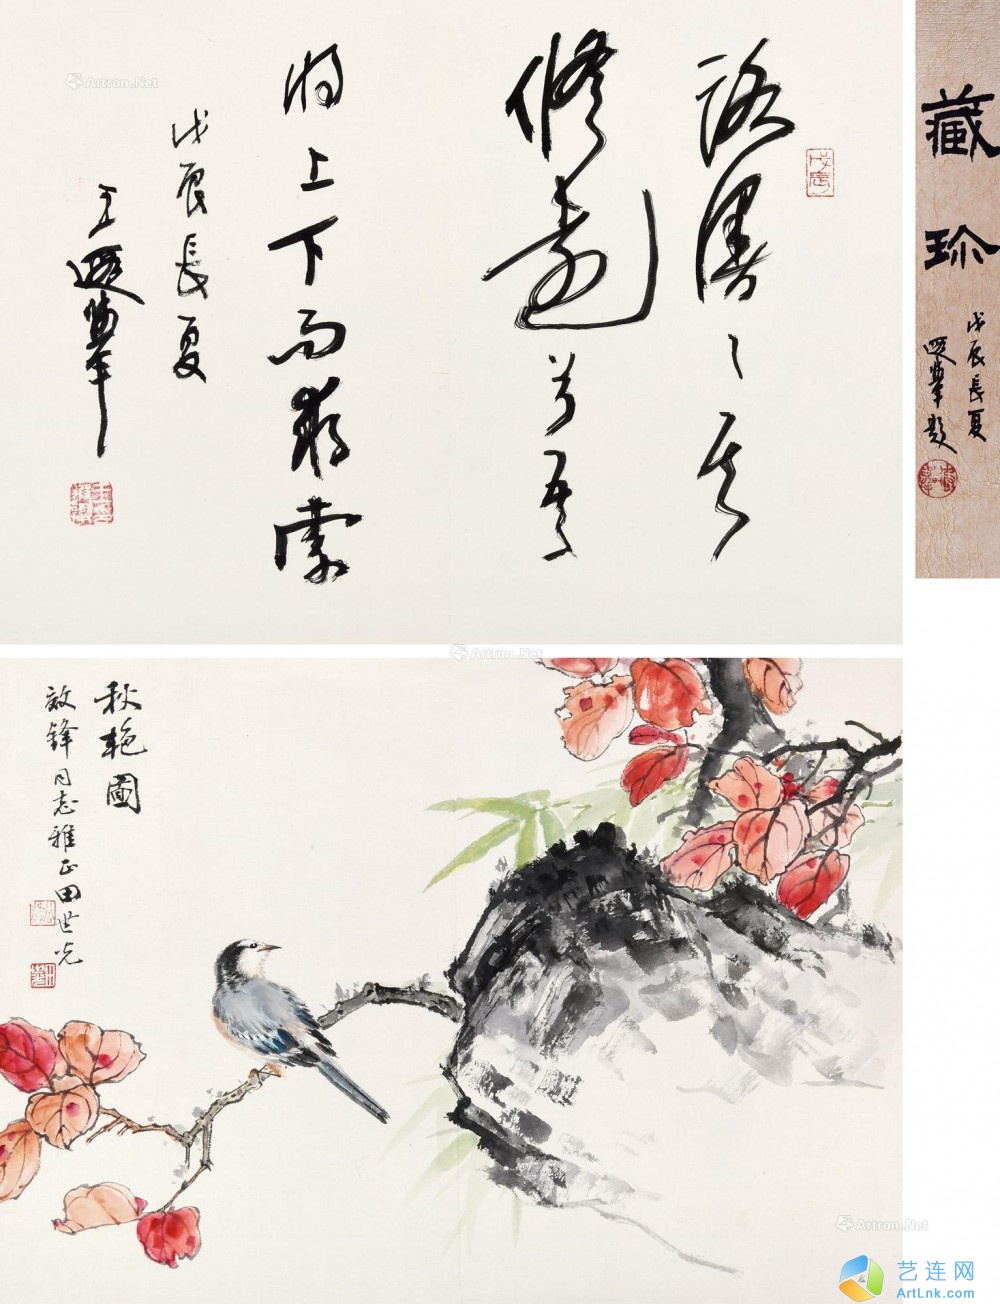 路漫漫其
修远兮吾
将上下而求索
戊辰长夏
王遐举
藏珍
戊辰长夏
遐举题
秋艳图
敬锋同志雅正田世光
Artron.Net
Artron.Net
Artron.Net
艺连网
ArtLnk.com